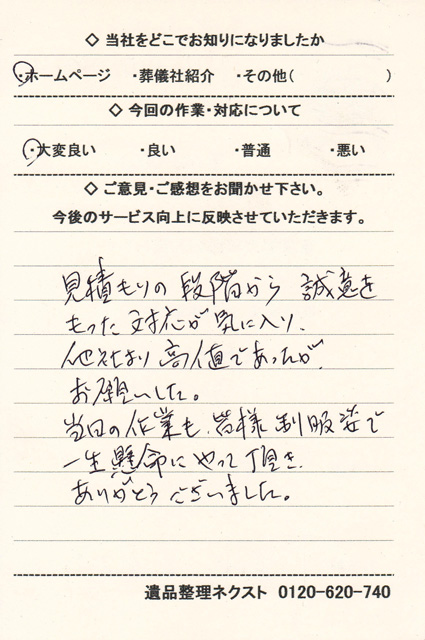 ◇ 当社をどこでお知りになりましたか
・ホームページ ・葬儀社紹介 ・その他( )
◇ 今回の作業・対応について
・大変良い ・良い ・普通 ・悪い
◇ ご意見・ご感想をお聞かせ下さい。
今後のサービス向上に反映させていただきます。
見積もりの段階から誠意を
もった対応が気に入り、
他社より高値であったが、
お願いした。
当日の作業も、皆様制服姿で
一生懸命にやって頂き、
ありがとうございました。
遺品整理ネクスト 0120-620-740